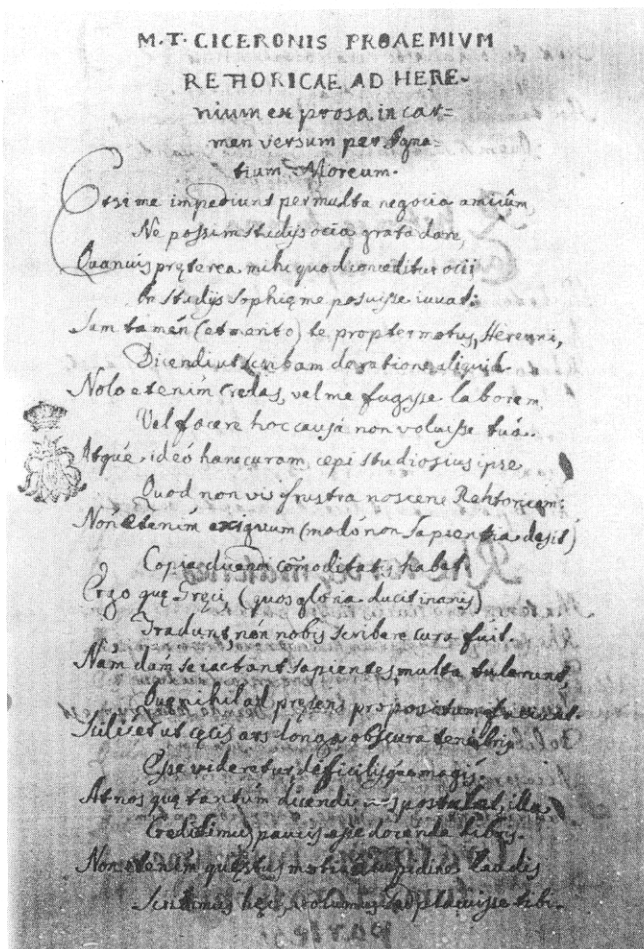 M. T. CICERONIS PROAEMIVM
RETHORICAE AD HERE-
nium ex prosa in car-
men versum per Igna-
tium Moreum.
Etsi me impediunt permulta negocia amicûm,
Ne possim studijs ocia grata dare,
Quanuis pręterea mihi quod conceditur ocii
In studijs sophię me posuisse iuvat:
Iam tamén (et merito) te propter motus, Herenni,
Dicendi ut scribam de ratione aliquid.
Nolo etenim credas, vel me fugisse laborem,
Vel facere hoc causâ non voluisse tuâ.
Atqué ideó hanc curam cepi studiosius ipse
Quod non vis frustra noscere Rehtoricam:
Non etenim exiguum (modó non sapientia desit)
Copia dicendi comoditatis habet.
Ergo quę Gręci, (quos gloria ducit inanis)
Tradunt, non nobis scribere cura fuit.
Nam dum se iactant sapientes multa tulerunt,
Que nihil ad pręsens propositum
Scilicet ut cęcis ars longa obscura tenebris
Esse videretur, dificilisque magis.
At nos quę tantúm dicendi postulat, illa
Credidimus paucis esse docenda libris.
Non etenim quęstus moti cupidine laudis
Scribimus hęc, volumus sed placuisse tibi.